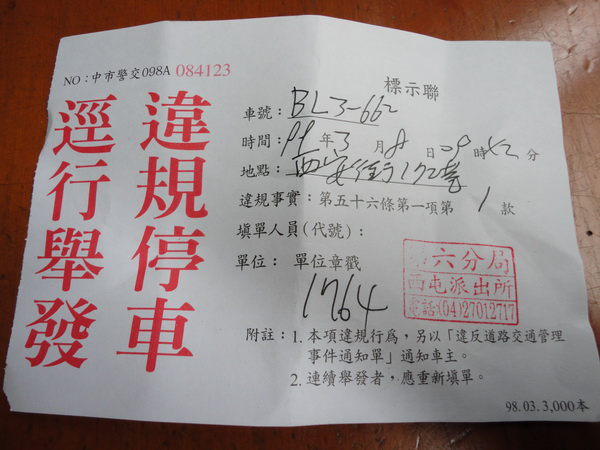 NO：中市警交098A 084123
違規停車
逕行舉發
標示聯
車號：BL3-662
時間：99年3月8日09時42分
地點：西安街172巷
違規事實：第五十六條第一項第1款
填單人員(代號)：
單位：單位章戳
1764
六分局
西屯派出所
電話(04)27012717
附註：1. 本項違規行為，另以「違反道路交通管理
事件通知單」通知車主。
2. 連續舉發者，應重新填單。
98.03.3,000本